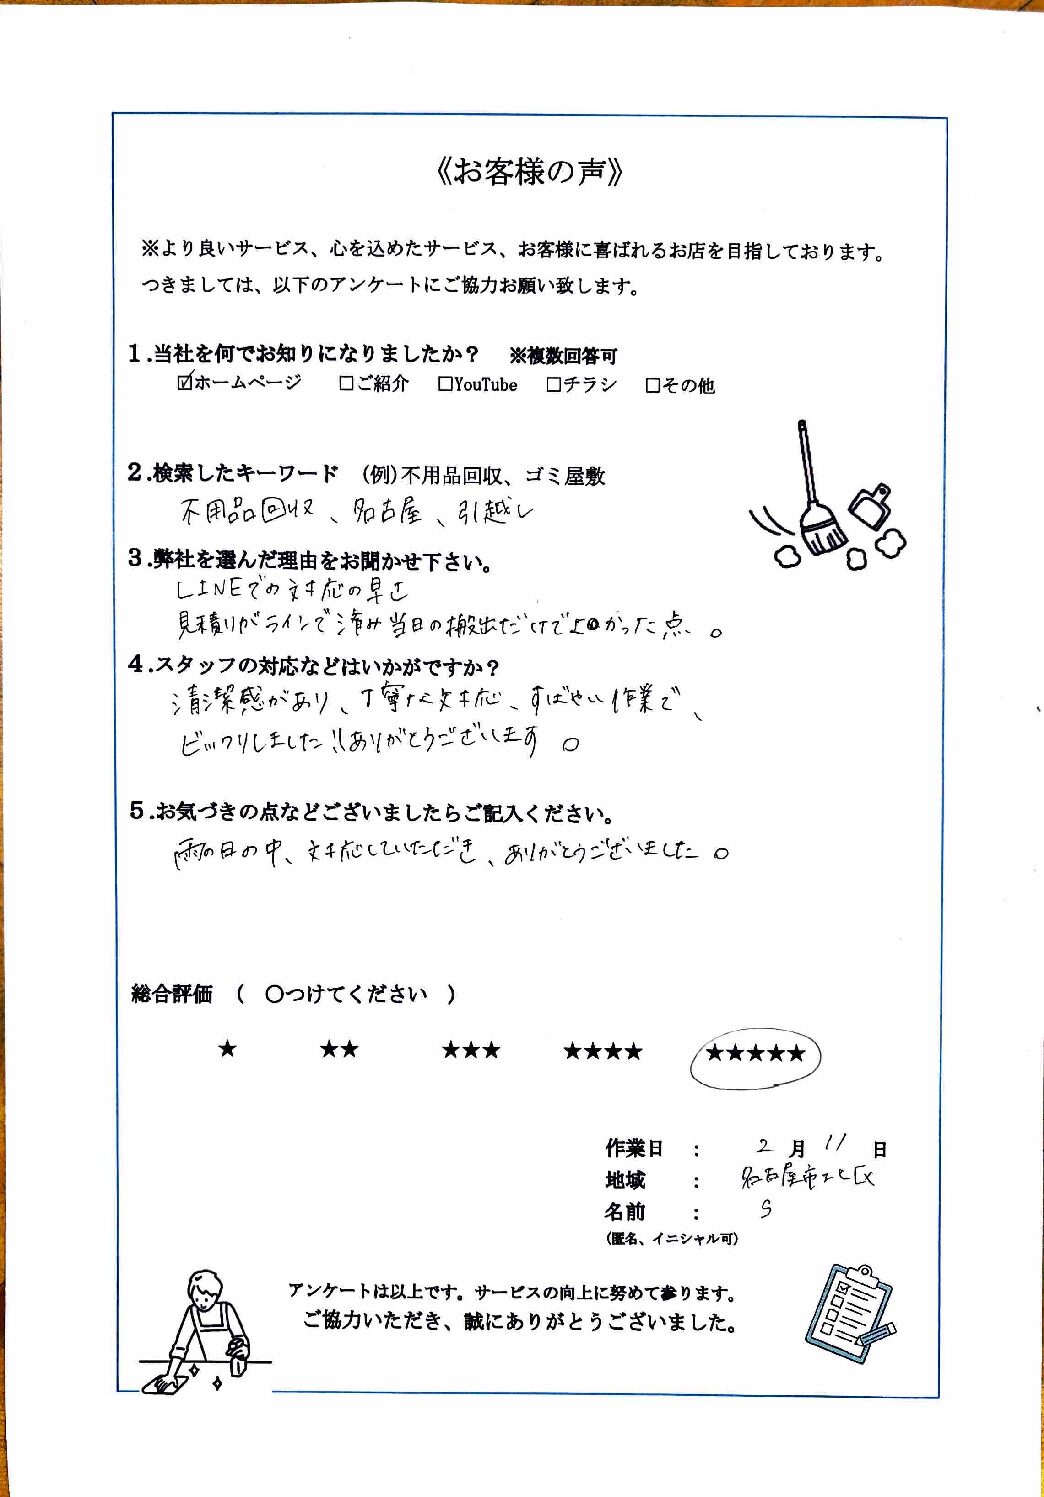 《お客様の声》
※より良いサービス、心を込めたサービス、お客様に喜ばれるお店を目指しております。
つきましては、以下のアンケートにご協力お願い致します。
1.当社を何でお知りになりましたか？ ※複数回答可
☑ホームページ □ご紹介 □YouTube □チラシ □その他
2.検索したキーワード (例)不用品回収、ゴミ屋敷
不用品回収、名古屋、引越し
3.弊社を選んだ理由をお聞かせ下さい。
LINEでの対応の早さ
見積りがラインで済み当日の搬出だけでよかった点。
4.スタッフの対応などはいかがですか？
清潔感があり、丁寧な対応、すばやい作業で、
ビックリしました!!ありがとうございます。
5.お気づきの点などございましたらご記入ください。
雨の日の中、対応していただき、ありがとうございました。
総合評価 ( 〇つけてください )
★ ★★ ★★★ ★★★★ ★★★★★
作業日 : 2月11日
地域 : 名古屋市北区
名前 : S
(匿名、イニシャル可)
アンケートは以上です。サービスの向上に努めて参ります。
ご協力いただき、誠にありがとうございました。